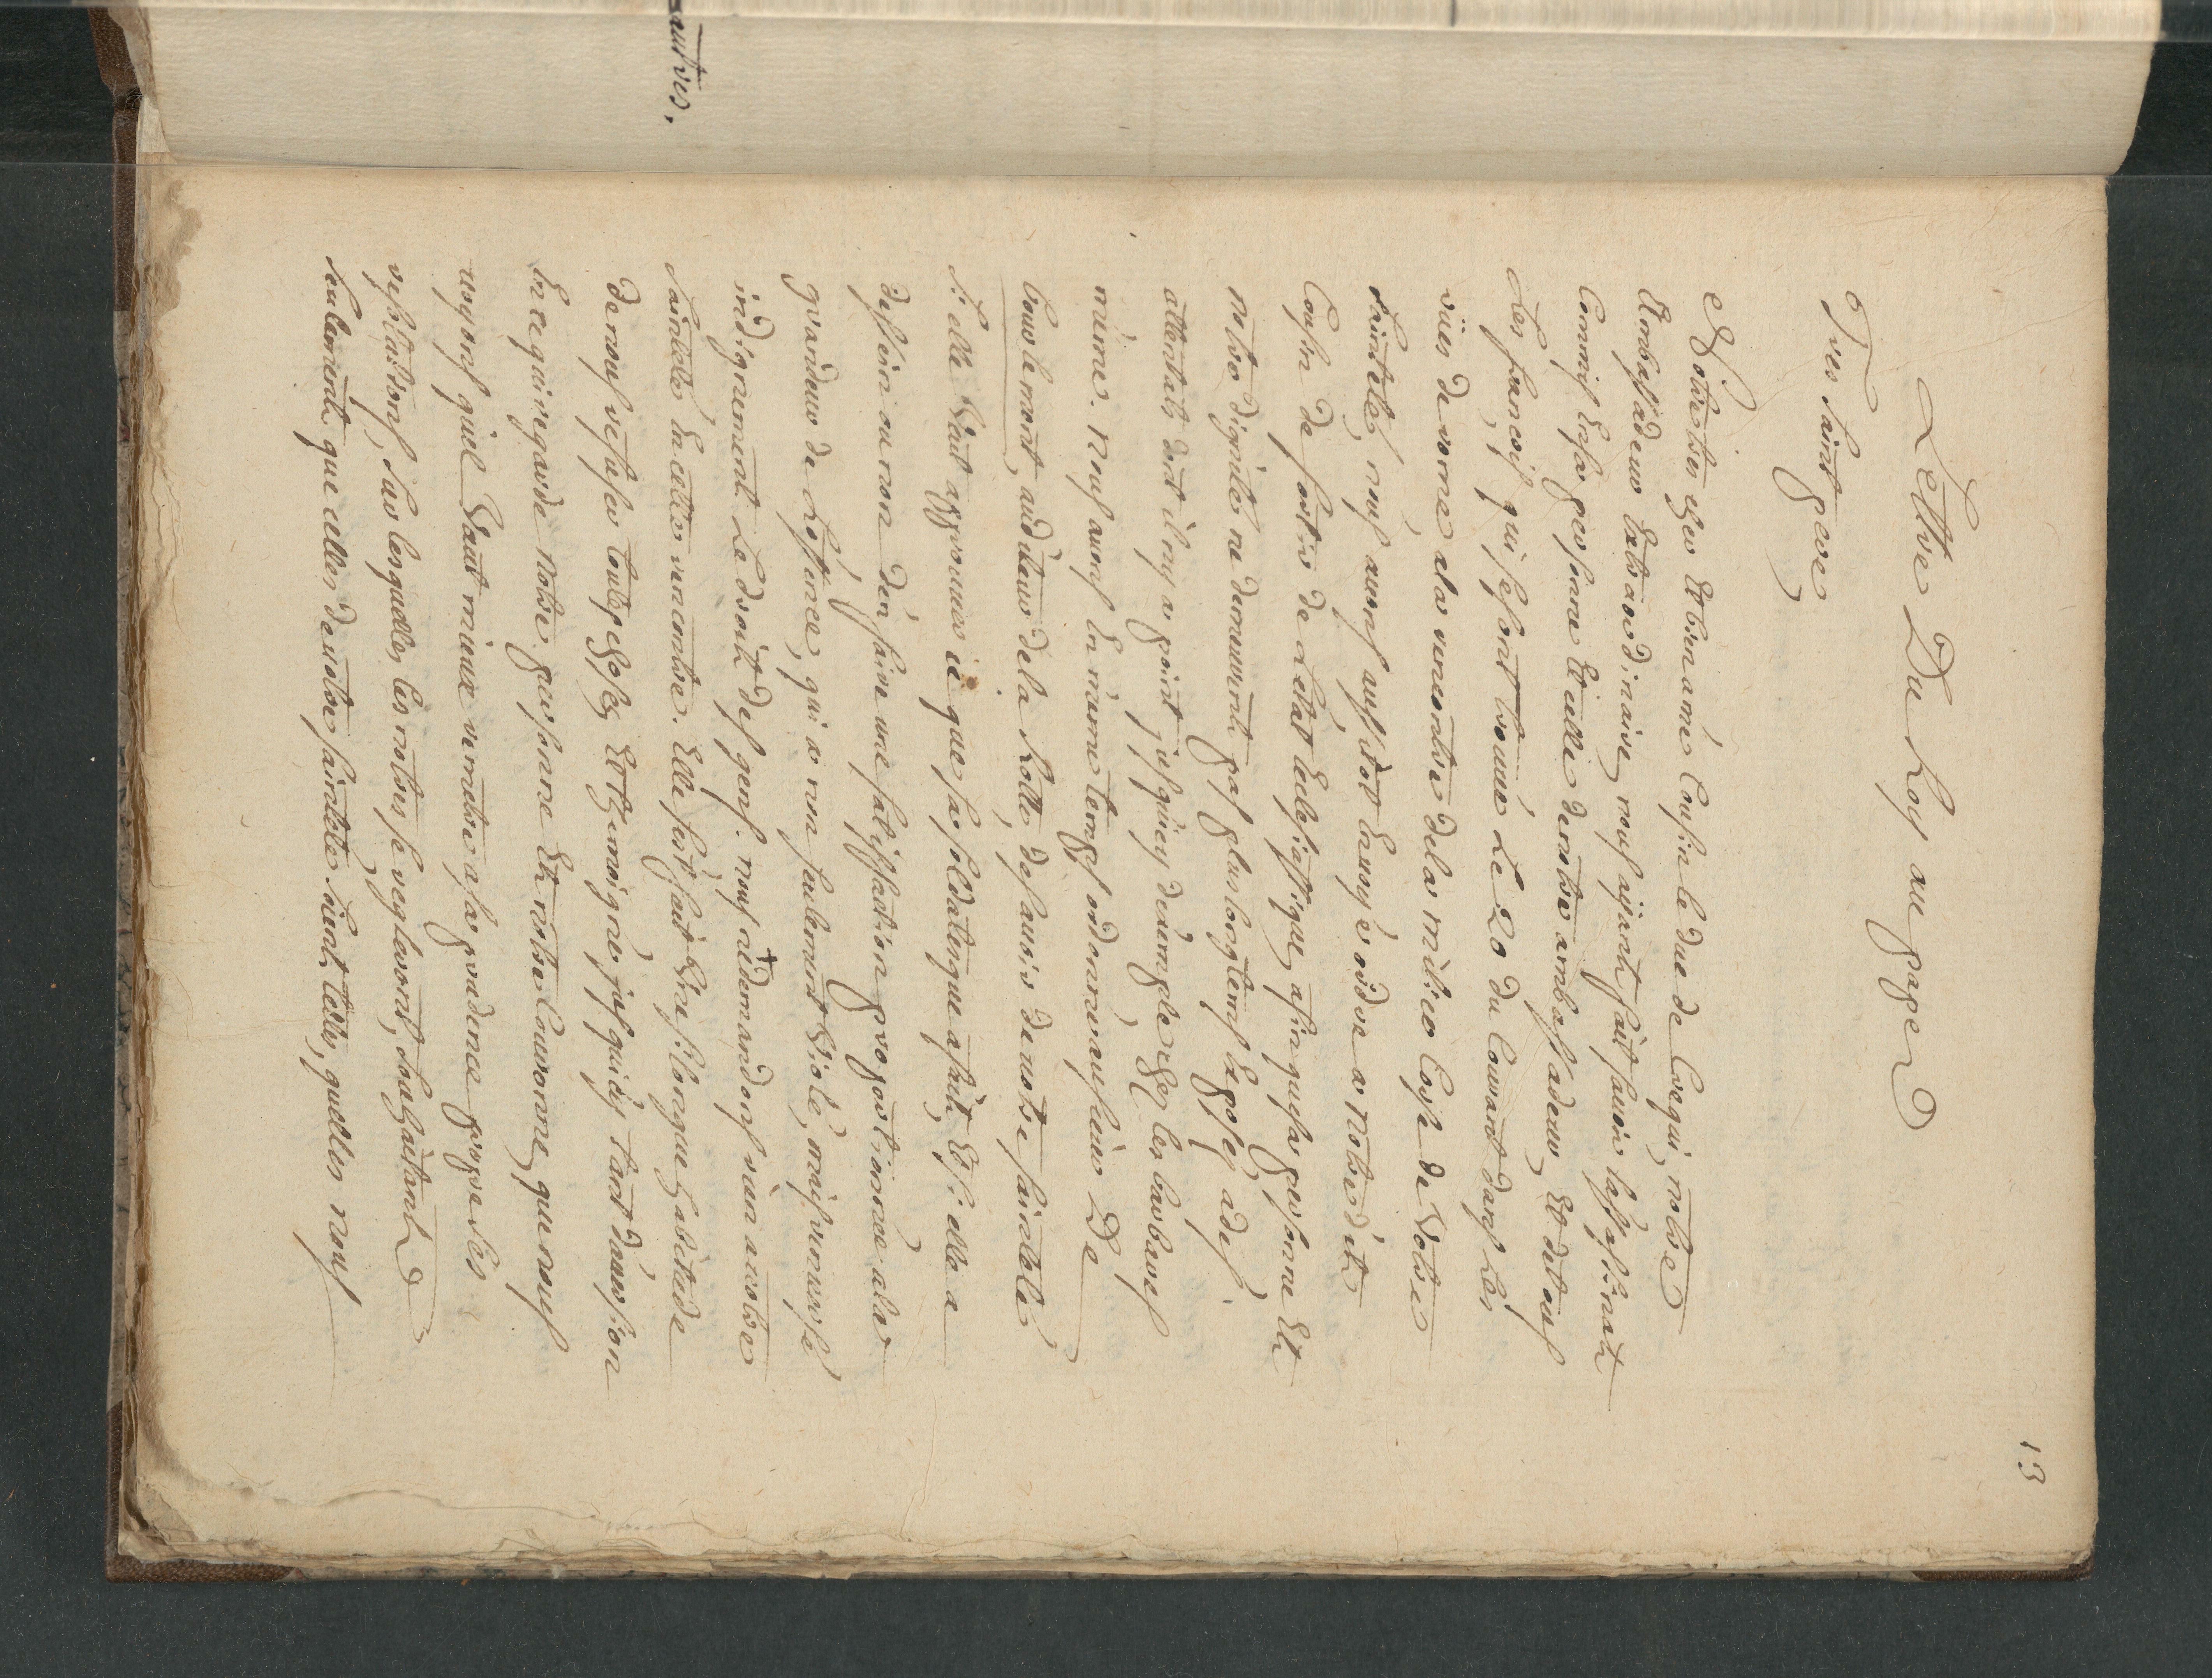 autres,
13
Lettre Du Roy au pape
Tres saint pere
Nostre tres cher et bien amé Cousin le duc de Crequi, notre
Ambassadeur Extraordinaire nous aÿant fait sauoir lassassinat
Commis En sa personne et celle de notre ambassadeur, et de tous
Les francois qui se sont trouué Le 20 du Courant dans Les
rües de rome a la rencontre de la milice Corse de Votre
sainteté, nous auons aussitost Enuoyé ordre a Notre dit
Cousin de sortir de Letat Ecclesiastique afin que sa personne et
notre dignité ne demeurent pas plus longtems Exposez a des
attentats dont il ny a point jusquicy dexemple chez les barbares
même. nous auons En même temps ordonné au sieur De
bourlemont, auditeur de la Rotte, de sauoir de notre sainteté
si elle Veut approuuer ce que sa soldatesque a fait, Et si elle a
dessein ou non den faire une satisfaction proportionnée a la
grandeur de Loffence, qui a non seulement Violé, mais renuersé
indignement Le droit des gens. nous ne demandons rien a votre
sainteté En cette rencontre. Elle sest fait Une si longue habitude
de nous refuser toutes choses Et temoigné jusquicy tant dauersion
En ce qui regarde Notre personne Et notre Couronne, que nous
croyons quil Vaut mieux remettre a sa prudence propre Les
resolutions, sur lesquelles les notres se regleront, souhaitant
seulement que celles de votre sainteté soient telles, quelles nous